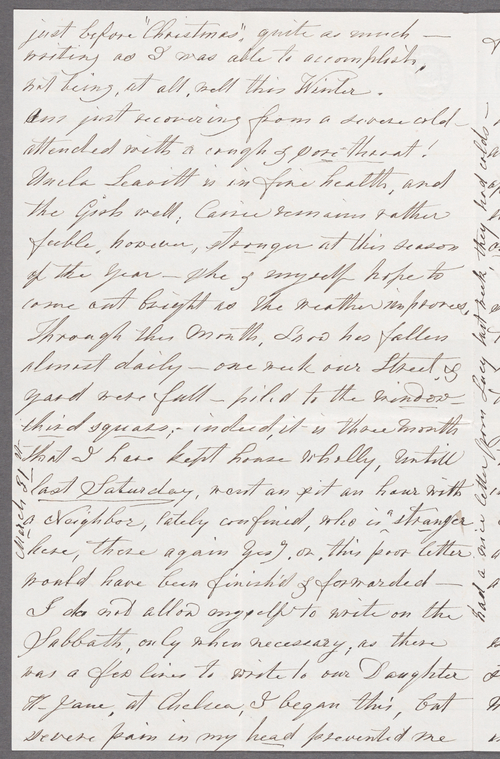 just before "Christmas", quite as much —
writing as I was able to accomplish,
not being, at all, well this Winter.
am just recovering from a severe cold
attended with a cough & sore-throat!
Uncle Leavitt is in fine health, and
the Girls well; Carrie remains rather
feeble, however, stronger at this season
of the Year — she & myself hope to
come out bright as the weather improves,
Through this Month, Snow has fallen
almost daily — one week our Street, &
yard were full — pil'd to the window-
third squares, — indeed, it is three Month
that I have kept house wholly, untill
last Saturday, went an sit an hour with
a Neighbor, lately confined, who is "stranger
here, there again
this poor letter
would have been finish'd & forwarded —
I do not allow myself to write on the
Sabbath, only when necessary, as there
was a few lines to write to our Daughter
H- Jane, at Chelsea, I began this, but
severe pain in my head prevented me
March 21st
had a nice letter from Lucy last week they had colds —